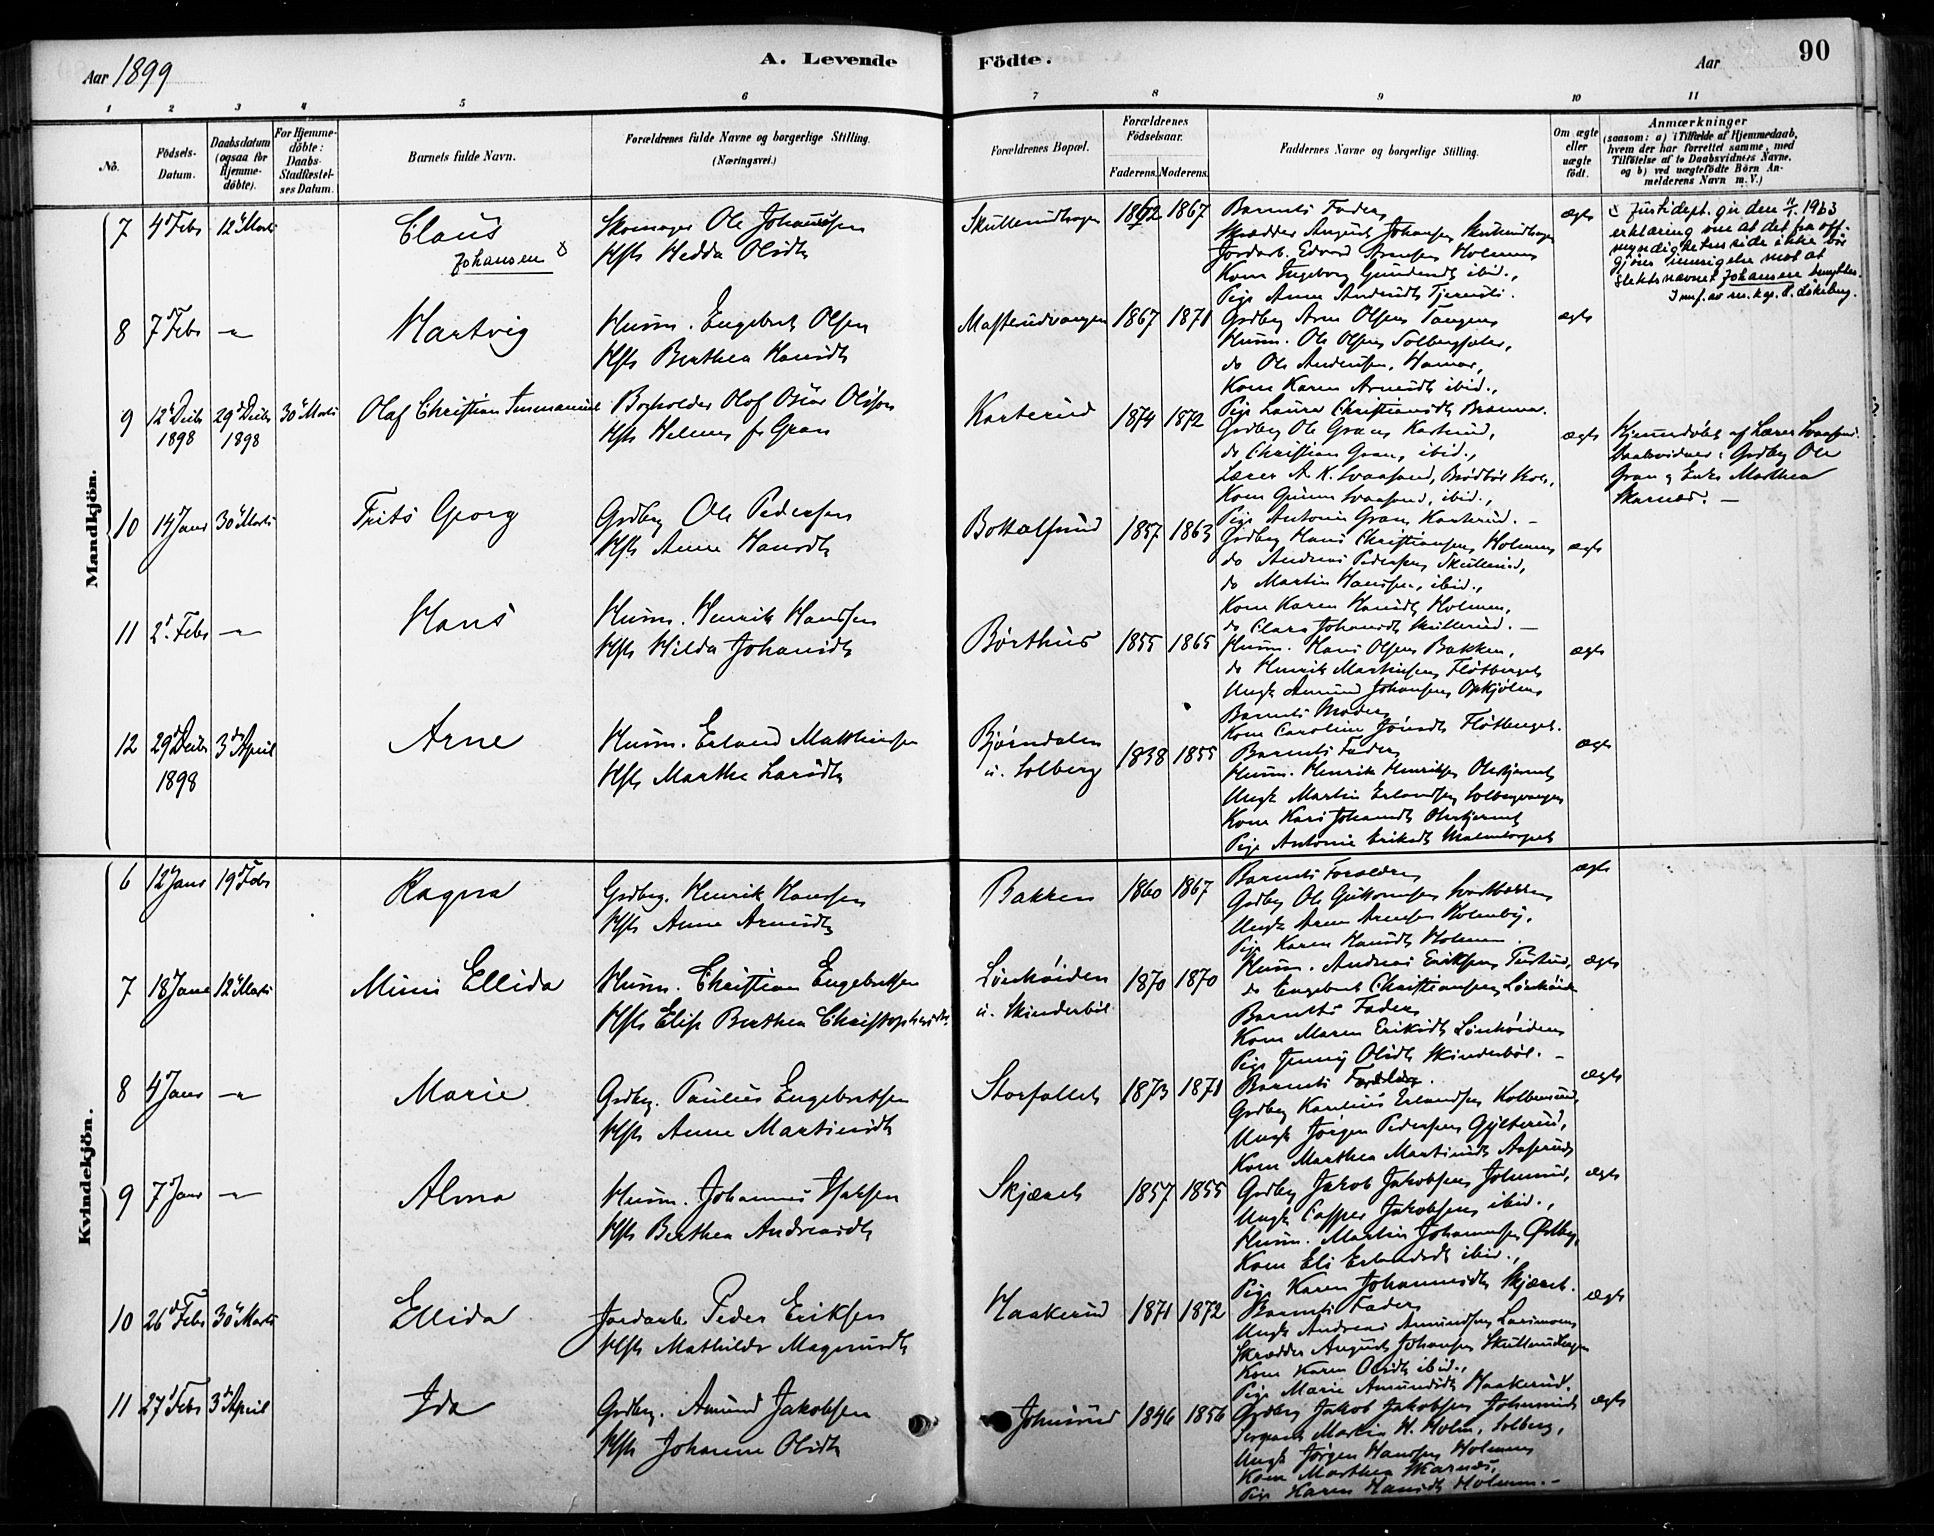 Aar 1899
A. Levende
Födte.
Aar
90
1 2 3 4 5 6 7 8 9 10 11
No.
Födsels-Datum.
Daabsdatum (ogsaa for Hjemme-döbte).
For Hjemme-döbte: Daabs-Stadfæstel-ses Datum.
Barnets fulde Navn.
Forældrenes fulde Navne og borgerlige Stilling.
(Næringsvei.)
Forældrenes Bopæl.
Forældrenes Födselsaar.
Faderens. Moderens.
Faddernes Navne og borgerlige Stilling.
Om ægte eller uægte födt.
Anmærkninger
(saasom: a) i Tilfælde af Hjemmedaab, hvem der har forrettet samme, med Tilföielse af to Daabsvidners Navne. og b) ved uægtefödte Börn An-melderens Navn m. V.)
Mandkjön.
7 4d Febr 12te Marts Claus Johansen x
Skomager Ole Johanssen
Hst Hedda Olsdtr
Skullerudhagen 1862 1867
Barnets Fader,
Skrædder August Johansen Skullerudhagen
Jordarb. Edvard Jensen Holmen
Kone Ingeborg Gundersdt ibid.,
Pige Anne Andersdt Tjernsli.
ægte
x Justisdept. gir den 11/1. 1923
erklæring om at det fra off.
myndigheters side ikke bør
gjøres innsigelse mot at
slektsnavnet Johansen benyttes.
Innf. av res. kap. P. Løkeberg.
8 7d Febr -"- Hartvig
Husm. Engebret Olsen
Hst Berthea Hansdtr
Masterudvangen 1867 1871
Grdbr Arne Olsen Tangen
Husm. Ole Olsen Solbergsæter,
do Ole Andersen, Hamar,
Kone Karen Arnesdt ibid.,
Pige Laura Christiansdt Brænna.
ægte
9 12te Decbr 1898 29de Decbr 1898 30te Marts Olaf Christian Immanuel
Bogholder Olof Oscar Olsson
Hst Helene f. Gran
Karterud 1874 1872
Grdbr Ole Gran, Karterud,
do Christian Gran, ibid.,
Lærer A. K. Svaasand, Brødbøl Skole,
Kone Gunne Svaasand, ibid.,
Pige Antonie Gran, Karterud. -
ægte
Hjemmedøbt af Lærer Svaasand.
Daabsvidner: Grdbr Ole
Gran og Enke Marthea
Skarnæs. -
10 14 Janr 30te Marts Frits Georg
Grdbr Ole Pedersen
Hst Anne Hansdtr
1857 1863
Grdbr Hans Christiansen Holmen
do Andreas Pedersen Skullerud,
do Martin Hansen, ibid.,
Kone Karen Hansdt Holmen,
do Clara Johansdt Skullerud. -
ægte
11 2d Febr -"- Hans
Husm. Henrik Hansen
Hst Hilda Johansdtr
Børthus 1855 1865
Husm. Hans Olsen Bakken,
do Henrik Martinsen Fløtberget
Ungk Amund Johansen Opkjølen
Barnets Moder,
Kone Caroline Jonsdt Fløtberget.
ægte
12 29de Decbr 1898 3de April Arne
Husm. Erland Matthisen
Hst Marthe Larsdtr
Bjørndalen u. Solberg 1838 1855
Barnets Fader,
Husm. Henrik Henriksen
Ungk Martin Erlandsen Solbergvangen
Kone Kari Johansdt
Pige Antonie Eriksdt
ægte
Kvindekjön.
6 12 Janr 19de Febr Ragna
Grdbr. Henrik Hansen
Hst Anne Arnesdtr
Bakken 1860 1867
Barnets Forældre,
Grdbr Ole Guttormsen
Ungk Arne Arnesen Holmby,
Pige Karen Hansdt Holmen
ægte
7 18 Janr 12te Marts Mimi Ellida
Husm. Christian Engebretsen
Hst Elise Berthea Christophersdtr
Lønhøiden u. Skinderbøl 1870 1870
Husm. Andreas Eriksen
do Engebret Christiansen Lønhøiden
Barnets Fader,
Kone Maren Eriksdt Lønhøiden
Pige Jenny Olsdt Skinderbøl. -
ægte
8 4 Janr -"- Marie
Grdbr. Paulus Engebretsen
Hst Anne Martinsdtr
Storfallet 1873 1871
Barnets Forældre.
Grdbr Karelius Erlandsen Kolbersrud,
Ungk Jørgen Pedersen Gylterud,
Kone Marthea Martinsdt Aaserud
ægte
9 7 Janr -"- Alma
Husm. Johannes Isaksen
Hst Berthea Andreasdtr
Skjæret 1857 1855
Grdbr Jakob Jakobsen Johnsrud,
Ungk Casper Jakobsen ibid.,
Husm. Martin Johannesen Østby,
Kone Eli Erlandsdt ibid.,
Pige Karen Johannesdt Skjæret.
ægte
10 26de Febr 30te Marts Ellida
Jordarb Peder Eriksen
Hst Mathilde Magnusdtr
Haakerud 1871 1872
Barnets Fader
Ungk Andreas Amundsen
Skrædder August Johansen Skullerudhagen
Kone Karen Olsdt ibid.,
Pige Marie Amundsdt Haakerud.
ægte
11 27d Febr 3de April Ida
Grdbr. Amund Jakobsen
Hst Johanne Olsdtr
Johnsrud 1846 1856
Grdbr Jakob Jakobsen Johnsrud
Sergeant Martin H. Holm, Solberg,
Ungk Jørgen Hansen Holmen
Kone Marthea Skarnæs,
Pige Karen Hansdt Holmen. -
ægte